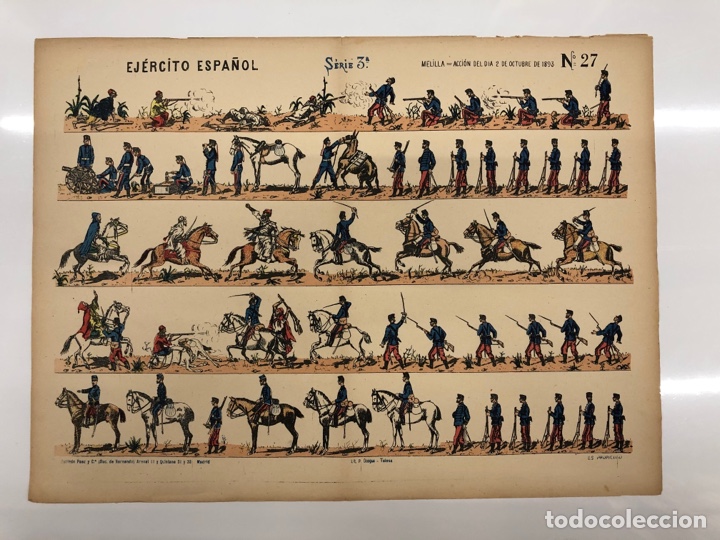 EJÉRCITO ESPAÑOL
Série 3ª
MELILLA = ACCIÓN DEL DIA 2 DE OCTUBRE DE 1893
Nº 27
Paez y Cª (Suc. de Hernando) Arenal 11 y Quintana 31 y 33. Madrid
Lit.
todocoleccion
todocoleccion.net